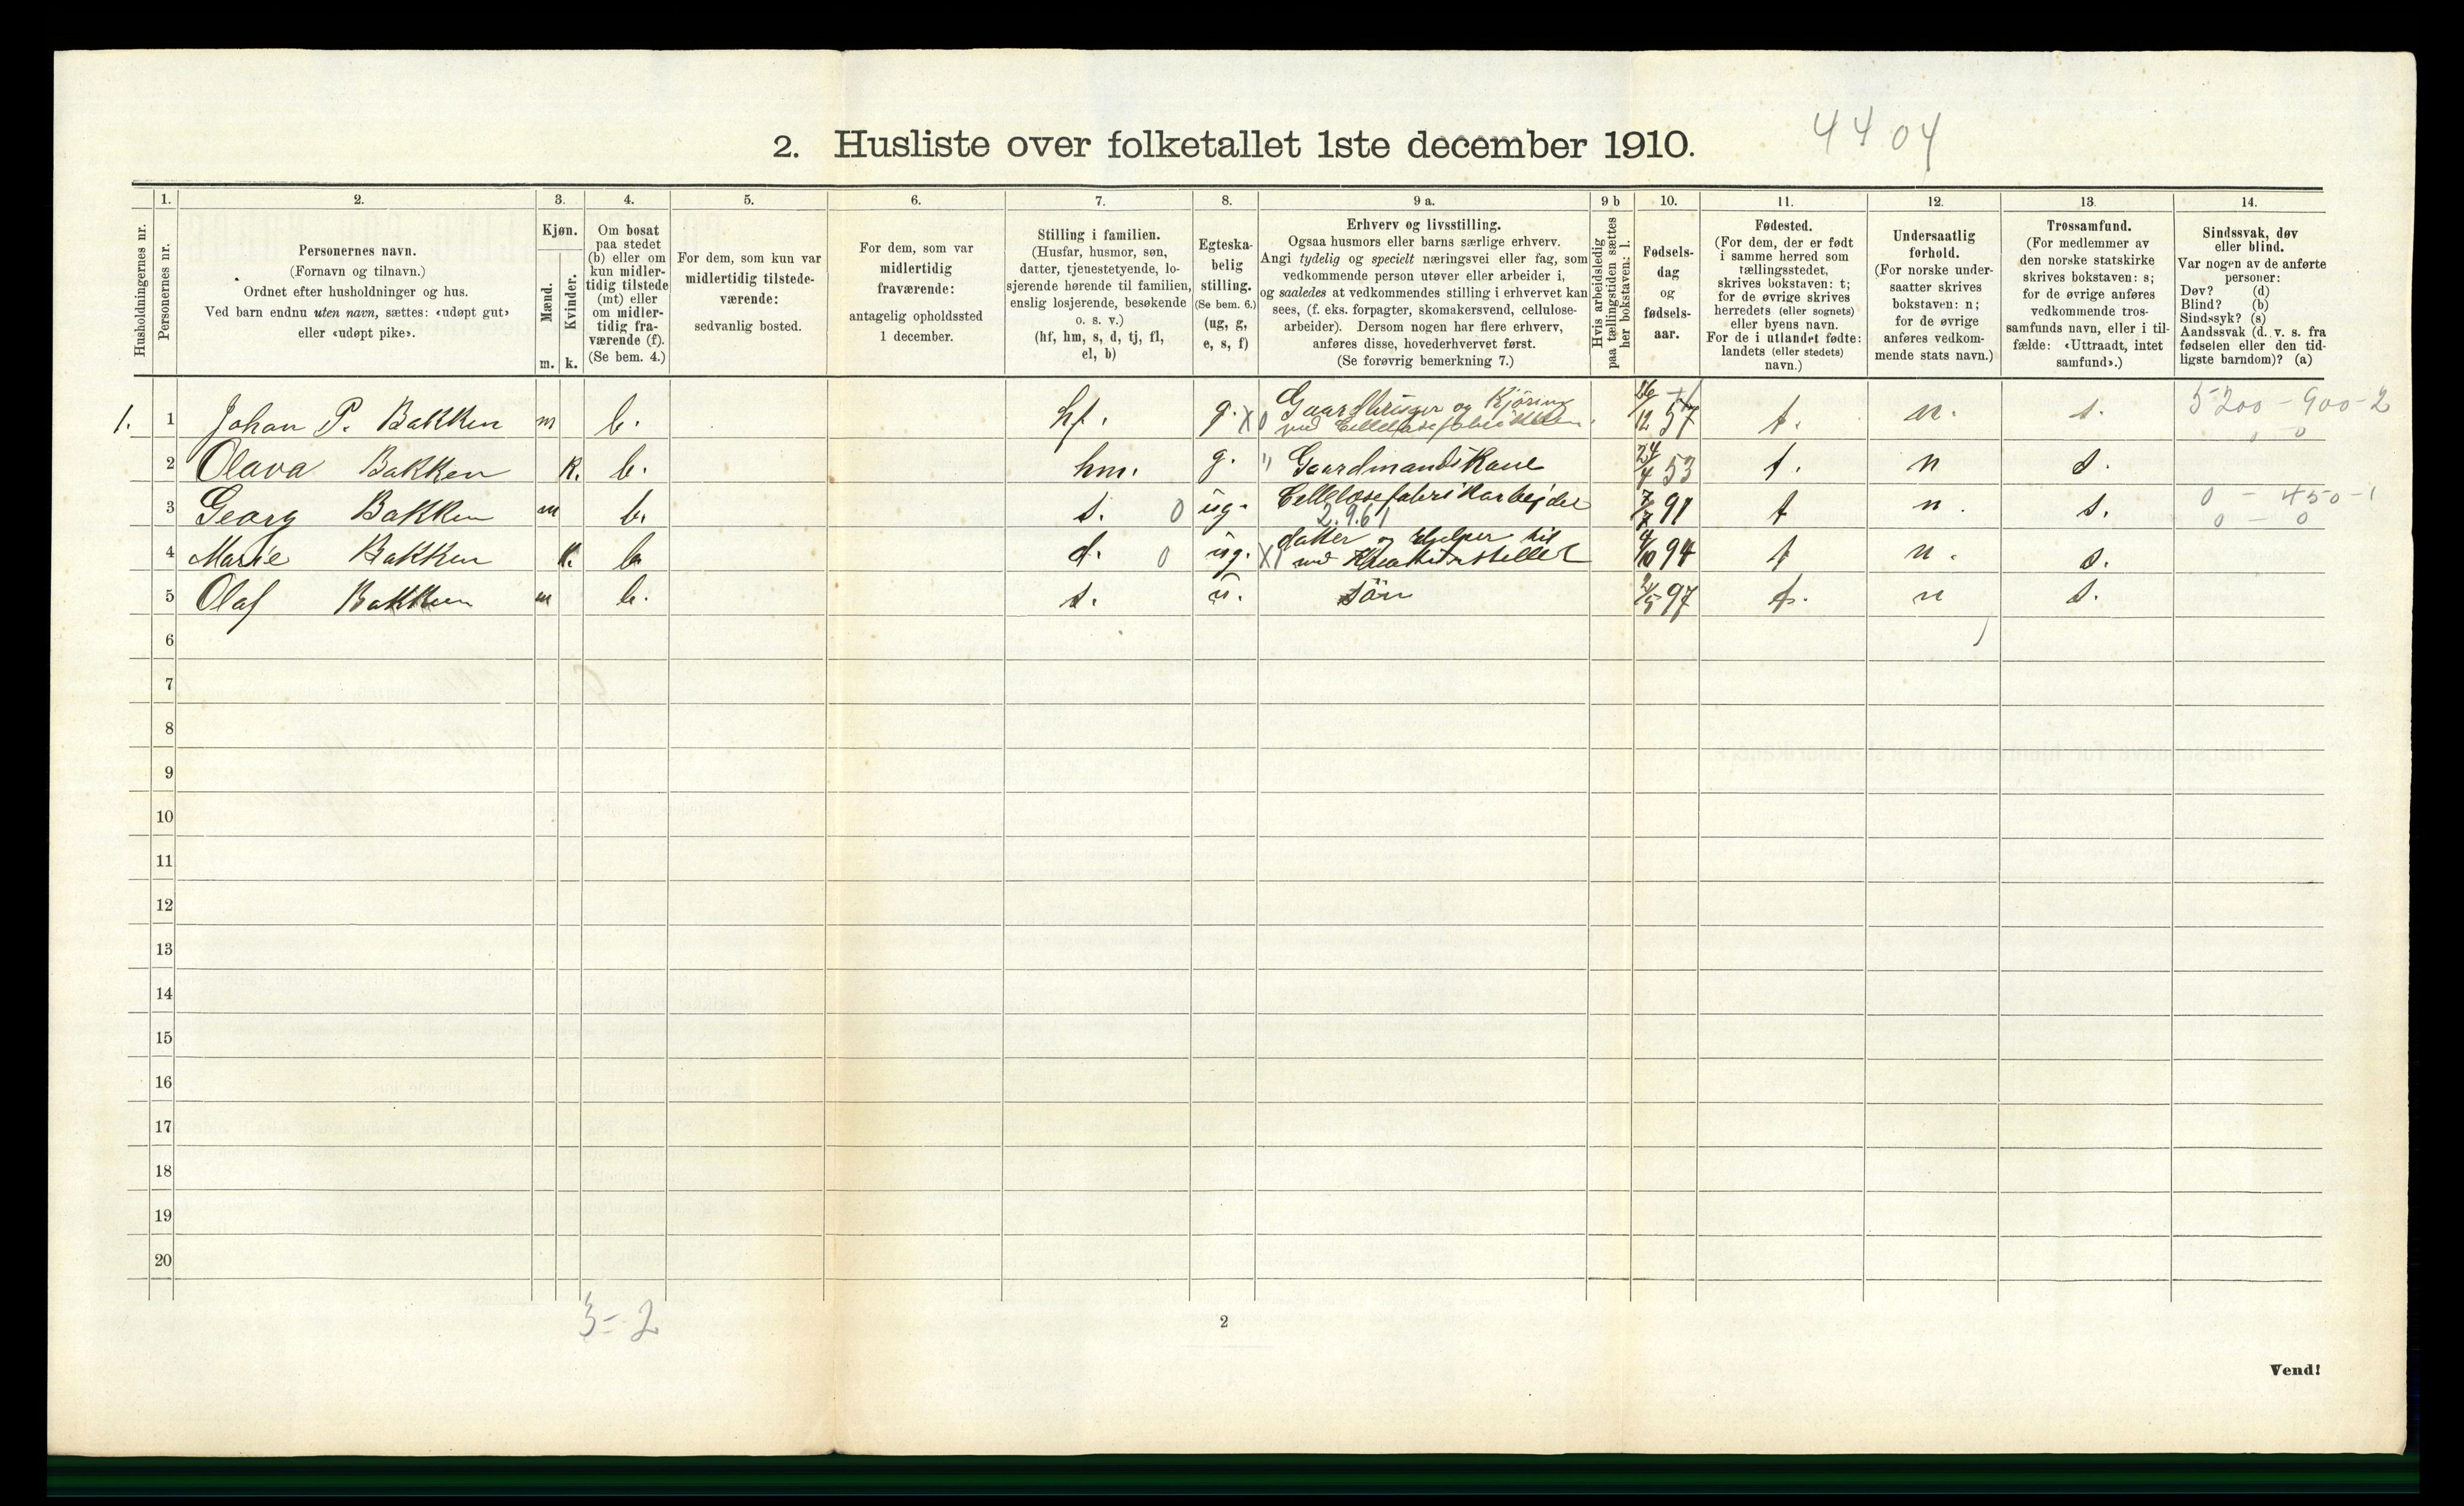 4404
2. Husliste over folketallet 1ste december 1910.
Husholdningernes nr.
1.
Personernes nr.
2.
Personernes navn.
(Fornavn og tilnavn.)
Ordnet efter husholdninger og hus.
Ved barn endnu uten navn, sættes: «udøpt gut»
eller «udøpt pike».
3.
Kjøn.
Mænd.
Kvinder.
m. k.
4.
Om bosat
paa stedet
(b) eller om
kun midler-
tidig tilstede
(mt) eller
om midler-
tidig fra-
værende (f).
(Se bem. 4.)
5.
For dem, som kun var
midlertidig tilstede-
værende:
sedvanlig bosted.
6.
For dem, som var
midlertidig
fraværende:
antagelig opholdssted
1 december.
7.
Stilling i familien.
(Husfar, husmor, søn,
datter, tjenestetyende, lo-
sjerende hørende til familien,
enslig losjerende, besøkende
o. s. v.)
(hf, hm, s, d, tj, fl,
el, b)
8.
Egteska-
belig
stilling.
(Se bem. 6.)
(ug, g,
e, s, f)
9 a.
Erhverv og livsstilling.
Ogsaa husmors eller barns særlige erhverv.
Angi tydelig og specielt næringsvei eller fag, som
vedkommende person utøver eller arbeider i,
og saaledes at vedkommendes stilling i erhvervet kan
sees, (f. eks. forpagter, skomakersvend, cellulose-
arbeider). Dersom nogen har flere erhverv,
anføres disse, hovederhvervet først.
(Se forøvrig bemerkning 7.)
9 b
Hvis arbeidsledig
paa tællingstiden sættes
her bokstaven: l.
10.
Fødsels-
dag
og
fødsels-
aar.
11.
Fødested.
(For dem, der er født
i samme herred som
tællingsstedet,
skrives bokstaven: t;
for de øvrige skrives
herredets (eller sognets)
eller byens navn.
For de i utlandet fødte:
landets (eller stedets)
navn.)
12.
Undersaatlig
forhold.
(For norske under-
saatter skrives
bokstaven: n;
for de øvrige
anføres vedkom-
mende stats navn.)
13.
Trossamfund.
(For medlemmer av
den norske statskirke
skrives bokstaven: s;
for de øvrige anføres
vedkommende tros-
samfunds navn, eller i til-
fælde: «Uttraadt, intet
samfund».)
14.
Sindssvak, døv
eller blind.
Var nogen av de anførte
personer:
Døv? (d)
Blind? (b)
Sindssyk? (s)
Aandssvak (d. v. s. fra
fødselen eller den tid-
ligste barndom)? (a)
1. 1 Johan P. Bakken m b. hf. g. X0 Gaardbruger og Kjöring ved 26/12 57 t. n. s. 5200 - 900 - 2
0 0
2 Olava Bakken k. b. hm. g. " Gaardmands Kone 24/4 53 t. n s.
3 Georg Bakken m b. s. 0 ug. Cellulosefabrikarbejder 7/7 91 t n. s. 0 - 450 - 1
2.9.61 0 - 0
4 Marie Bakken k. b. d. 0 ug. X datter og Hjelper til 4/10 94 t n. s.
5 Olaf Bakken m b. s. u. sön 24/5 97 t. n s.
6
7
8
9
10
11
12
13
14
15
16
17
18
19
20
3 = 2
2
Vend!